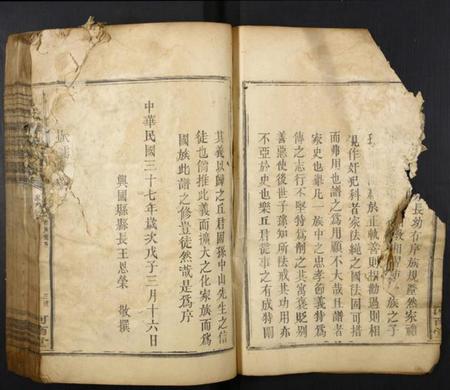 長幼有序族規歷然家禮
族之子
於正軌善則相勸過則相
作奸犯科者家法繩之國法固可措
而弗用也譜之為用顧不大哉且譜者
家史也舉凡一族中之忠孝節義特為
傳之志行不堅特為削之其寓褒貶別
善惡使後世子孫知所法戒其功用亦
不亞於史也樂丘君從事之有成特闡
其義以歸之丘君國孫中山先生之信
徒也倘推此義而擴大之化家族而為
國族此譜之修豈徒然哉是為序
中華民國三十七年歲次戊子三月十六日
興國縣縣長王恩榮 敬撰